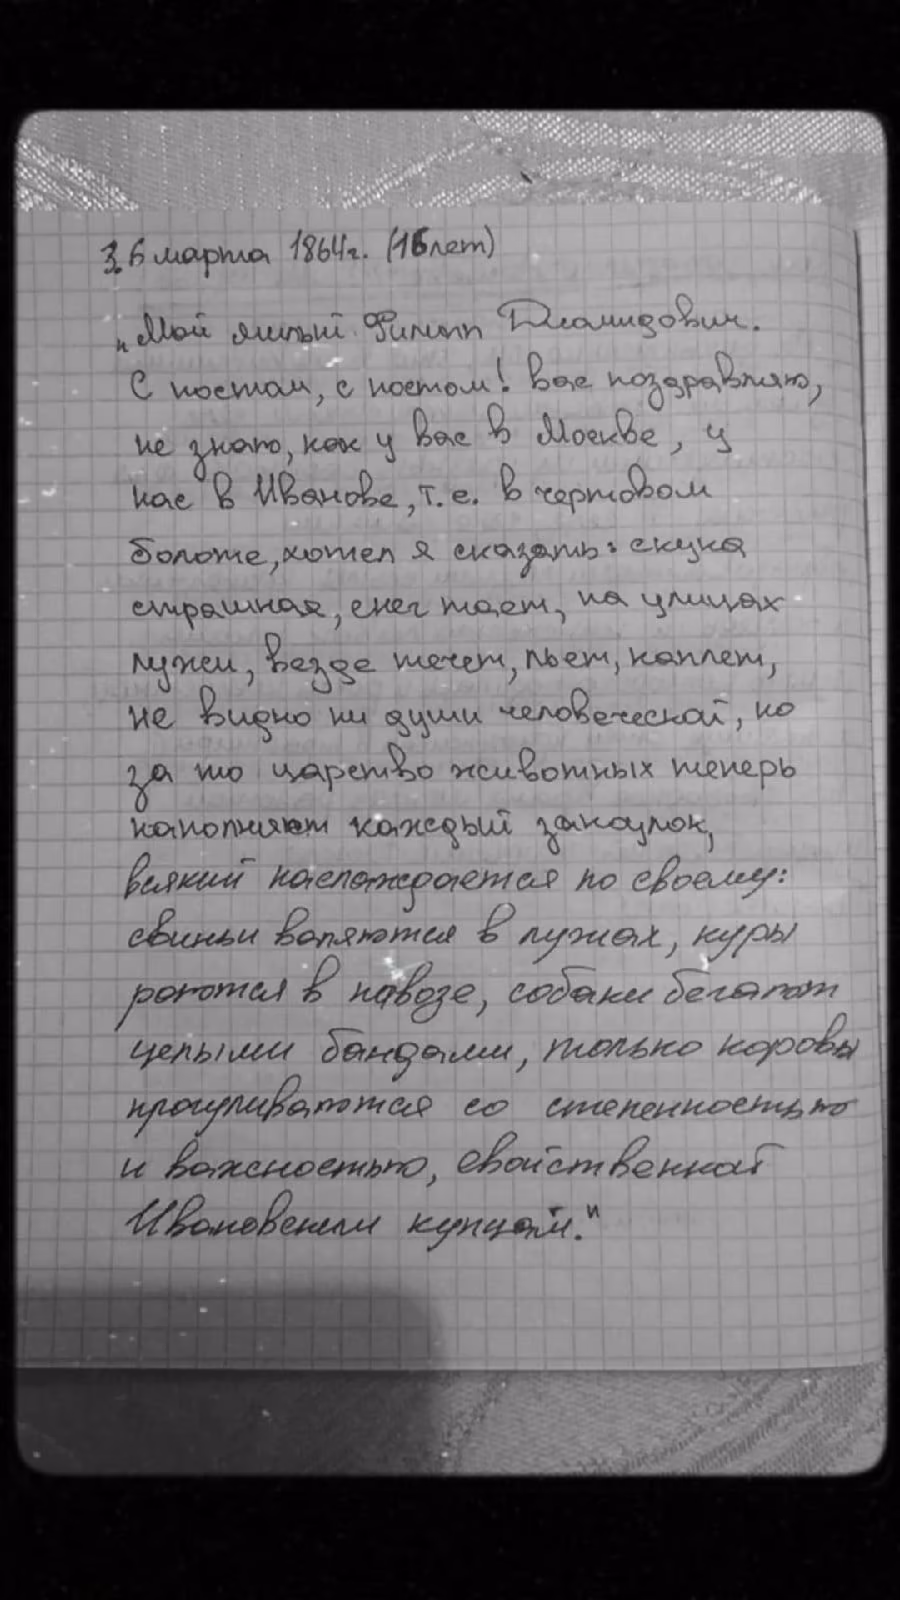 3. 6 марта 1864г. (16 лет)
„Мой милый Филипп Диомидович.
С постом, с постом! Вас поздравляю,
не знаю, как у вас в Москве, у
нас в Иванове, т.е. в чертовом
болоте, хотел я сказать: скука
страшная, снег тает, на улицах
лужи, везде течет, льет, каплет,
не видно ни души человеческой, но
за то царство животных теперь
наполняет каждый закоулок,
всякий наслаждается по своему:
свиньи валяются в лужах, куры
роются в навозе, собаки бегают
целыми бандами, только коровы
прогуливаются со степенностью
и важностью, свойственной
Ивановским купцам."